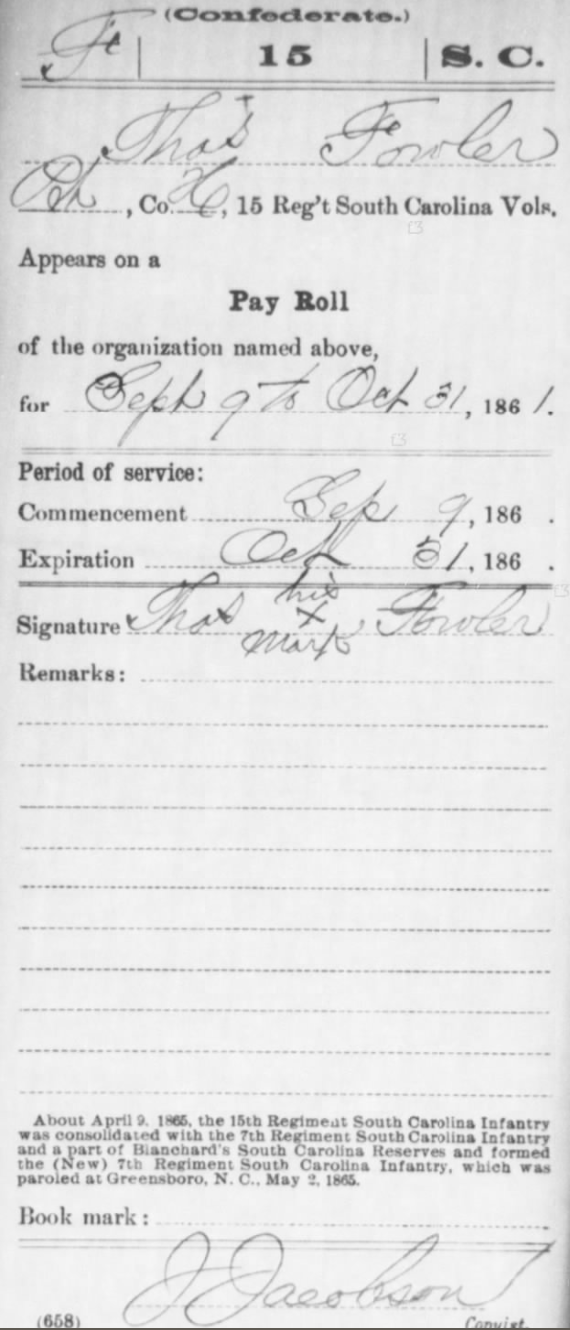 (Confederate.)
F | 15 | S. C.
Thos Fowler
Pvt, Co. H, 15 Reg't South Carolina Vols.
Appears on a
Pay Roll
of the organization named above,
for Sept 9 to Oct 31, 1861.
Period of service:
Commencement Sep 9, 186 .
Expiration Oct 31, 186 .
his
Signature Thos X Fowler
mark
Remarks:
About April 9, 1865, the 15th Regiment South Carolina Infantry
was consolidated with the 7th Regiment South Carolina Infantry
and a part of Blanchard's South Carolina Reserves and formed
the (New) 7th Regiment South Carolina Infantry, which was
paroled at Greensboro, N. C., May 2, 1865.
Book mark:
J Jacobson
(658) Copyist.